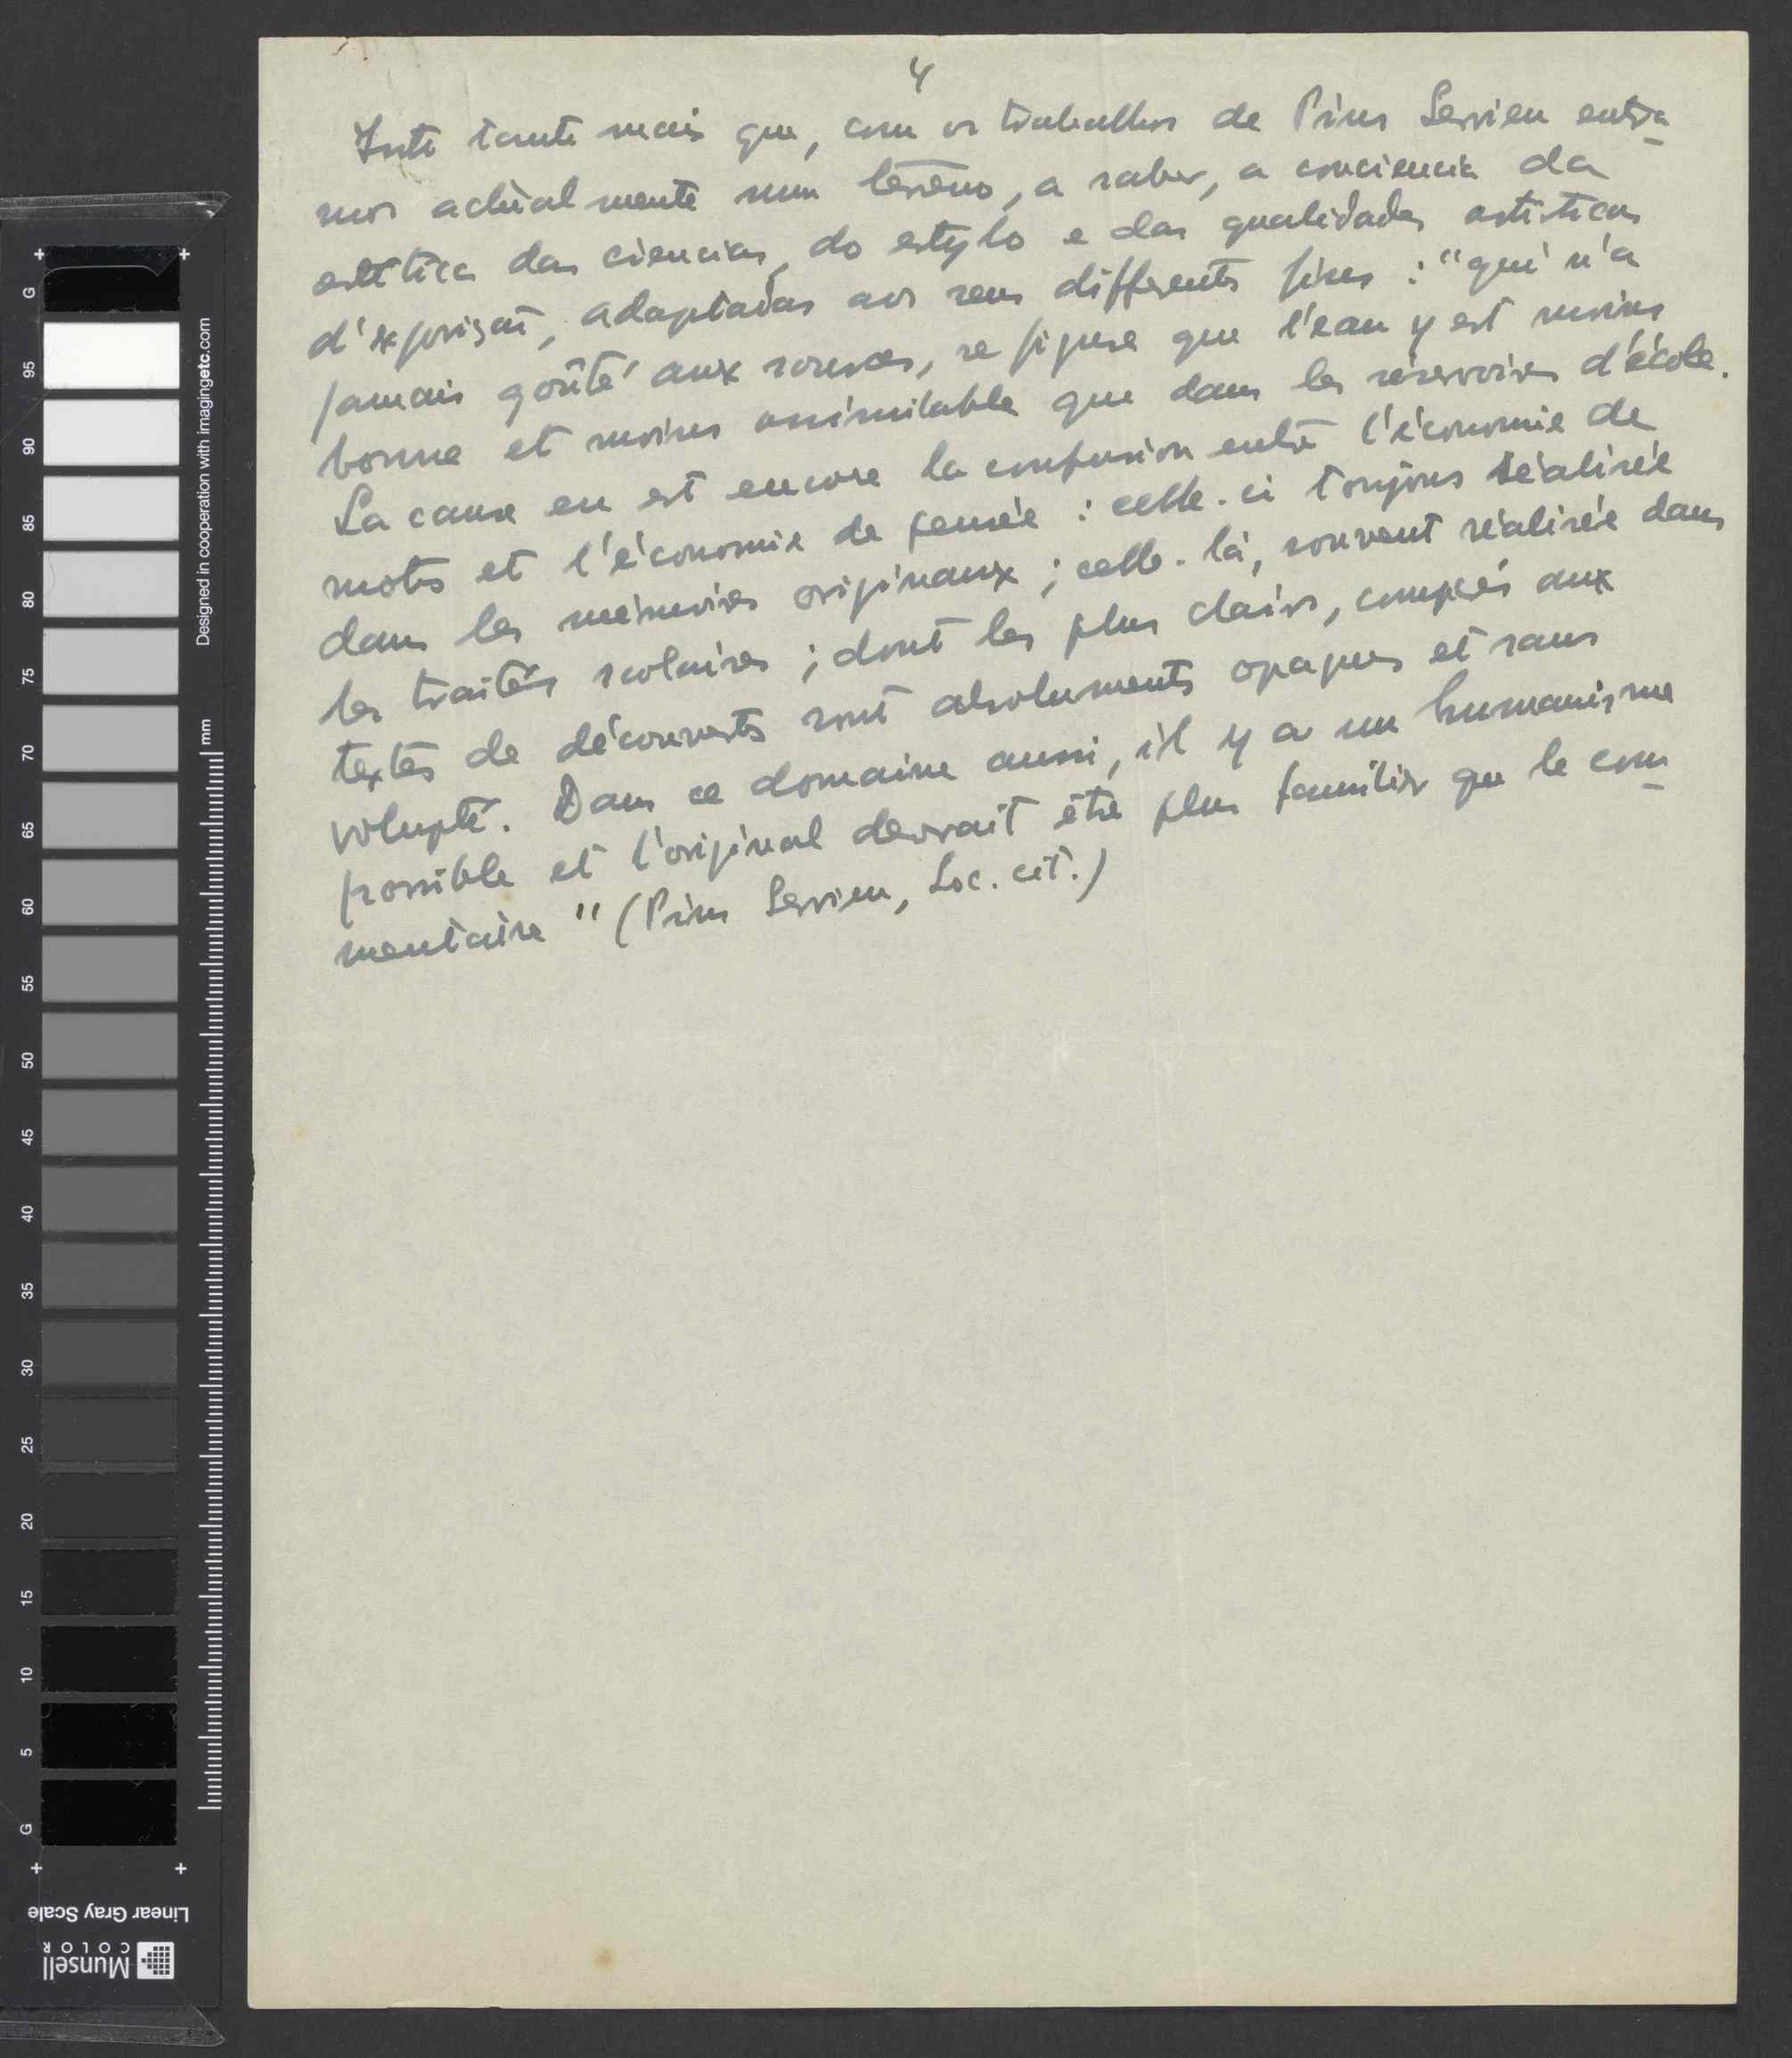 4
Isto tanto mais que, com os trabalhos de Pius Servien entra-
mos actualmente num terreno, a saber, a conciencia da
estética das ciencias, do estylo e das qualidades artisticas
d'exposição, adaptadas aos seus differentes fins : "qui n'a
jamais goûté aux sources, se figure que l'eau y est moins
bonne et moins assimilable que dans les réservoirs d'école.
La cause en est encore la confusion entre l'économie de
mots et l'économie de pensée : celle-ci toujours réalisée
dans les mémoires originaux ; celle-là, souvent réalisée dans
les traités scolaires ; dont les plus clairs, comparés aux
textes de découvertes sont absoluments opaques et sans
volupté. Dans ce domaine aussi, il y a un humanisme
possible et l'original devrait être plus familier que le com-
mentaire" (Pius Servien, Loc. cit.)
Designed in cooperation with imagingetc.com
mm
G
95
90
85
80
75
70
65
60
55
50
45
40
35
30
25
20
15
10
5
G
Linear Gray Scale
Munsell
COLOR